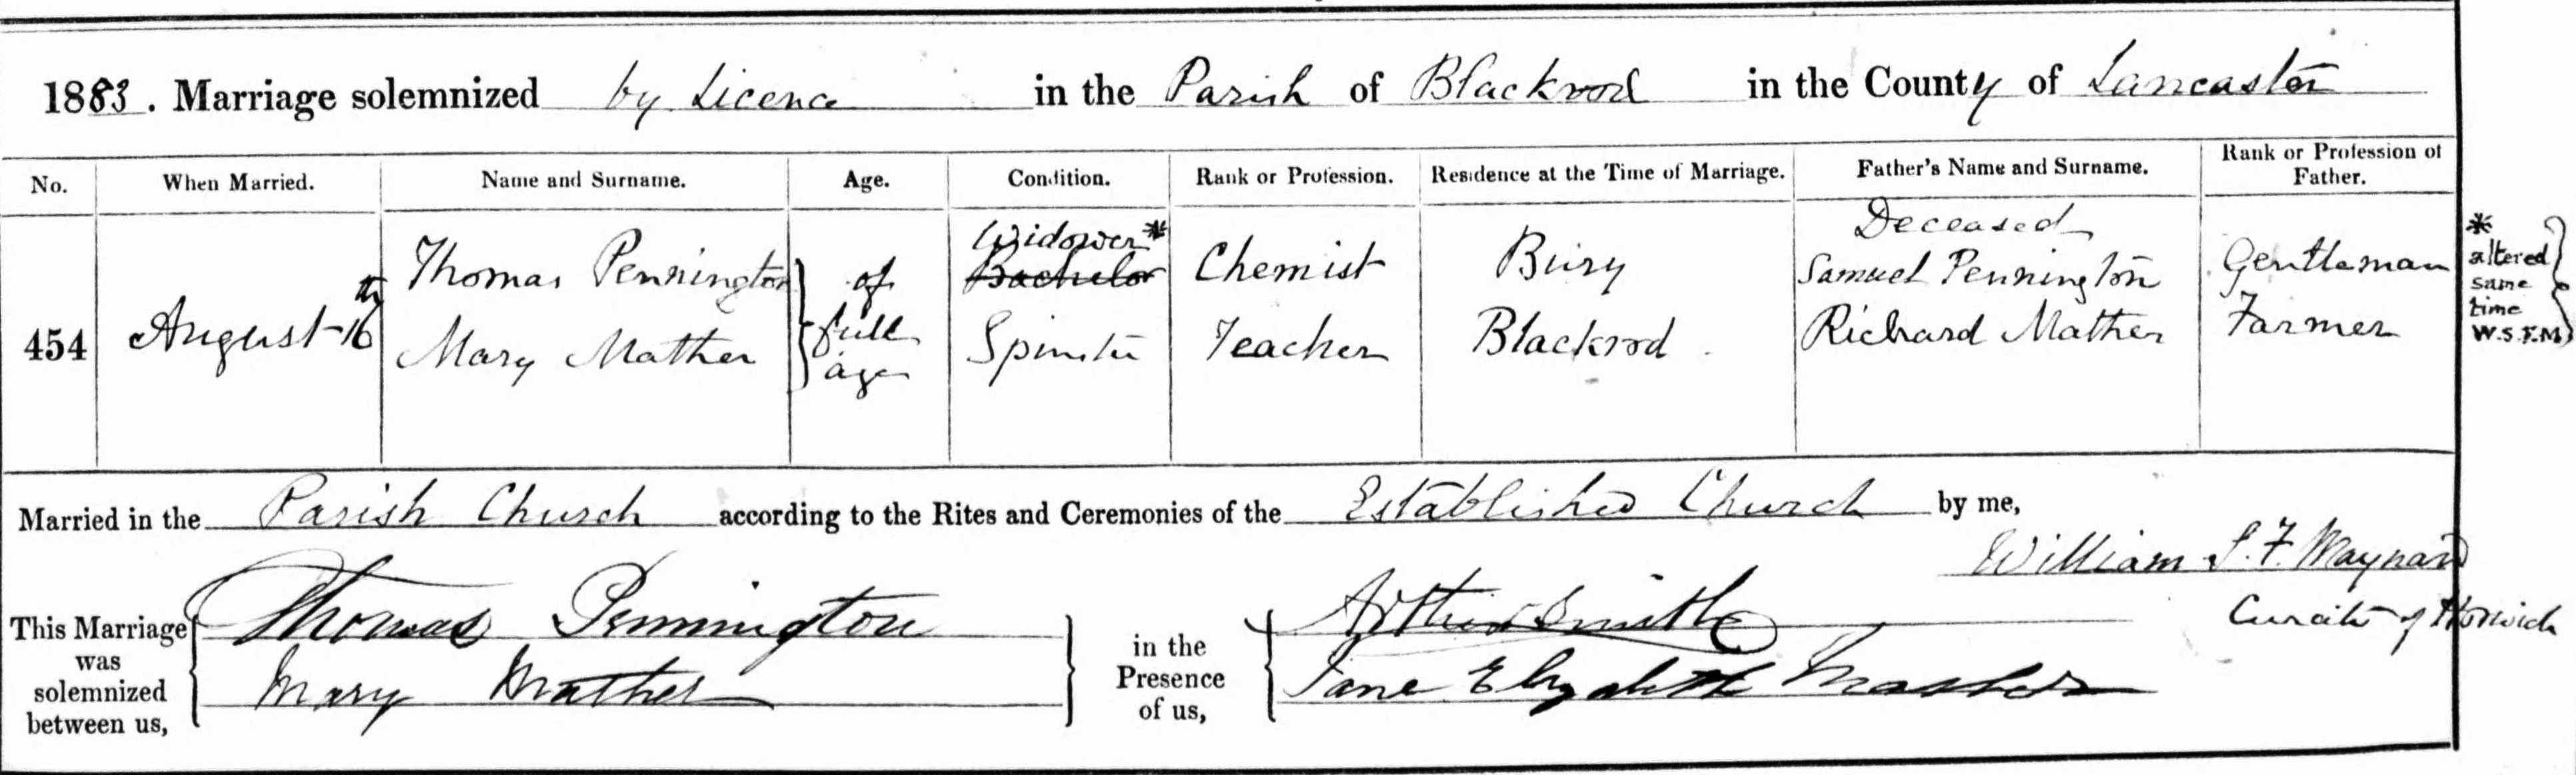 1883. Marriage solemnized by Licence in the Parish of Blackrod in the County of Lancaster
No. When Married. Name and Surname. Age. Condition. Rank or Profession. Residence at the Time of Marriage. Father's Name and Surname. Rank or Profession of Father.
454 August 16th Thomas Pennington of full age Widower* Bachelor Chemist Bury Deceased Samuel Pennington Gentleman
Mary Mather Spinster Teacher Blackrod Richard Mather Farmer
* altered same time W.S.F.M
Married in the Parish Church according to the Rites and Ceremonies of the Established Church by me,
William S. F. Maynard
Curate of Horwich
This Marriage was solemnized between us,
Thomas Pennington
Mary Mather
in the Presence of us,
Arthur Smith
Jane Elizabeth Mather